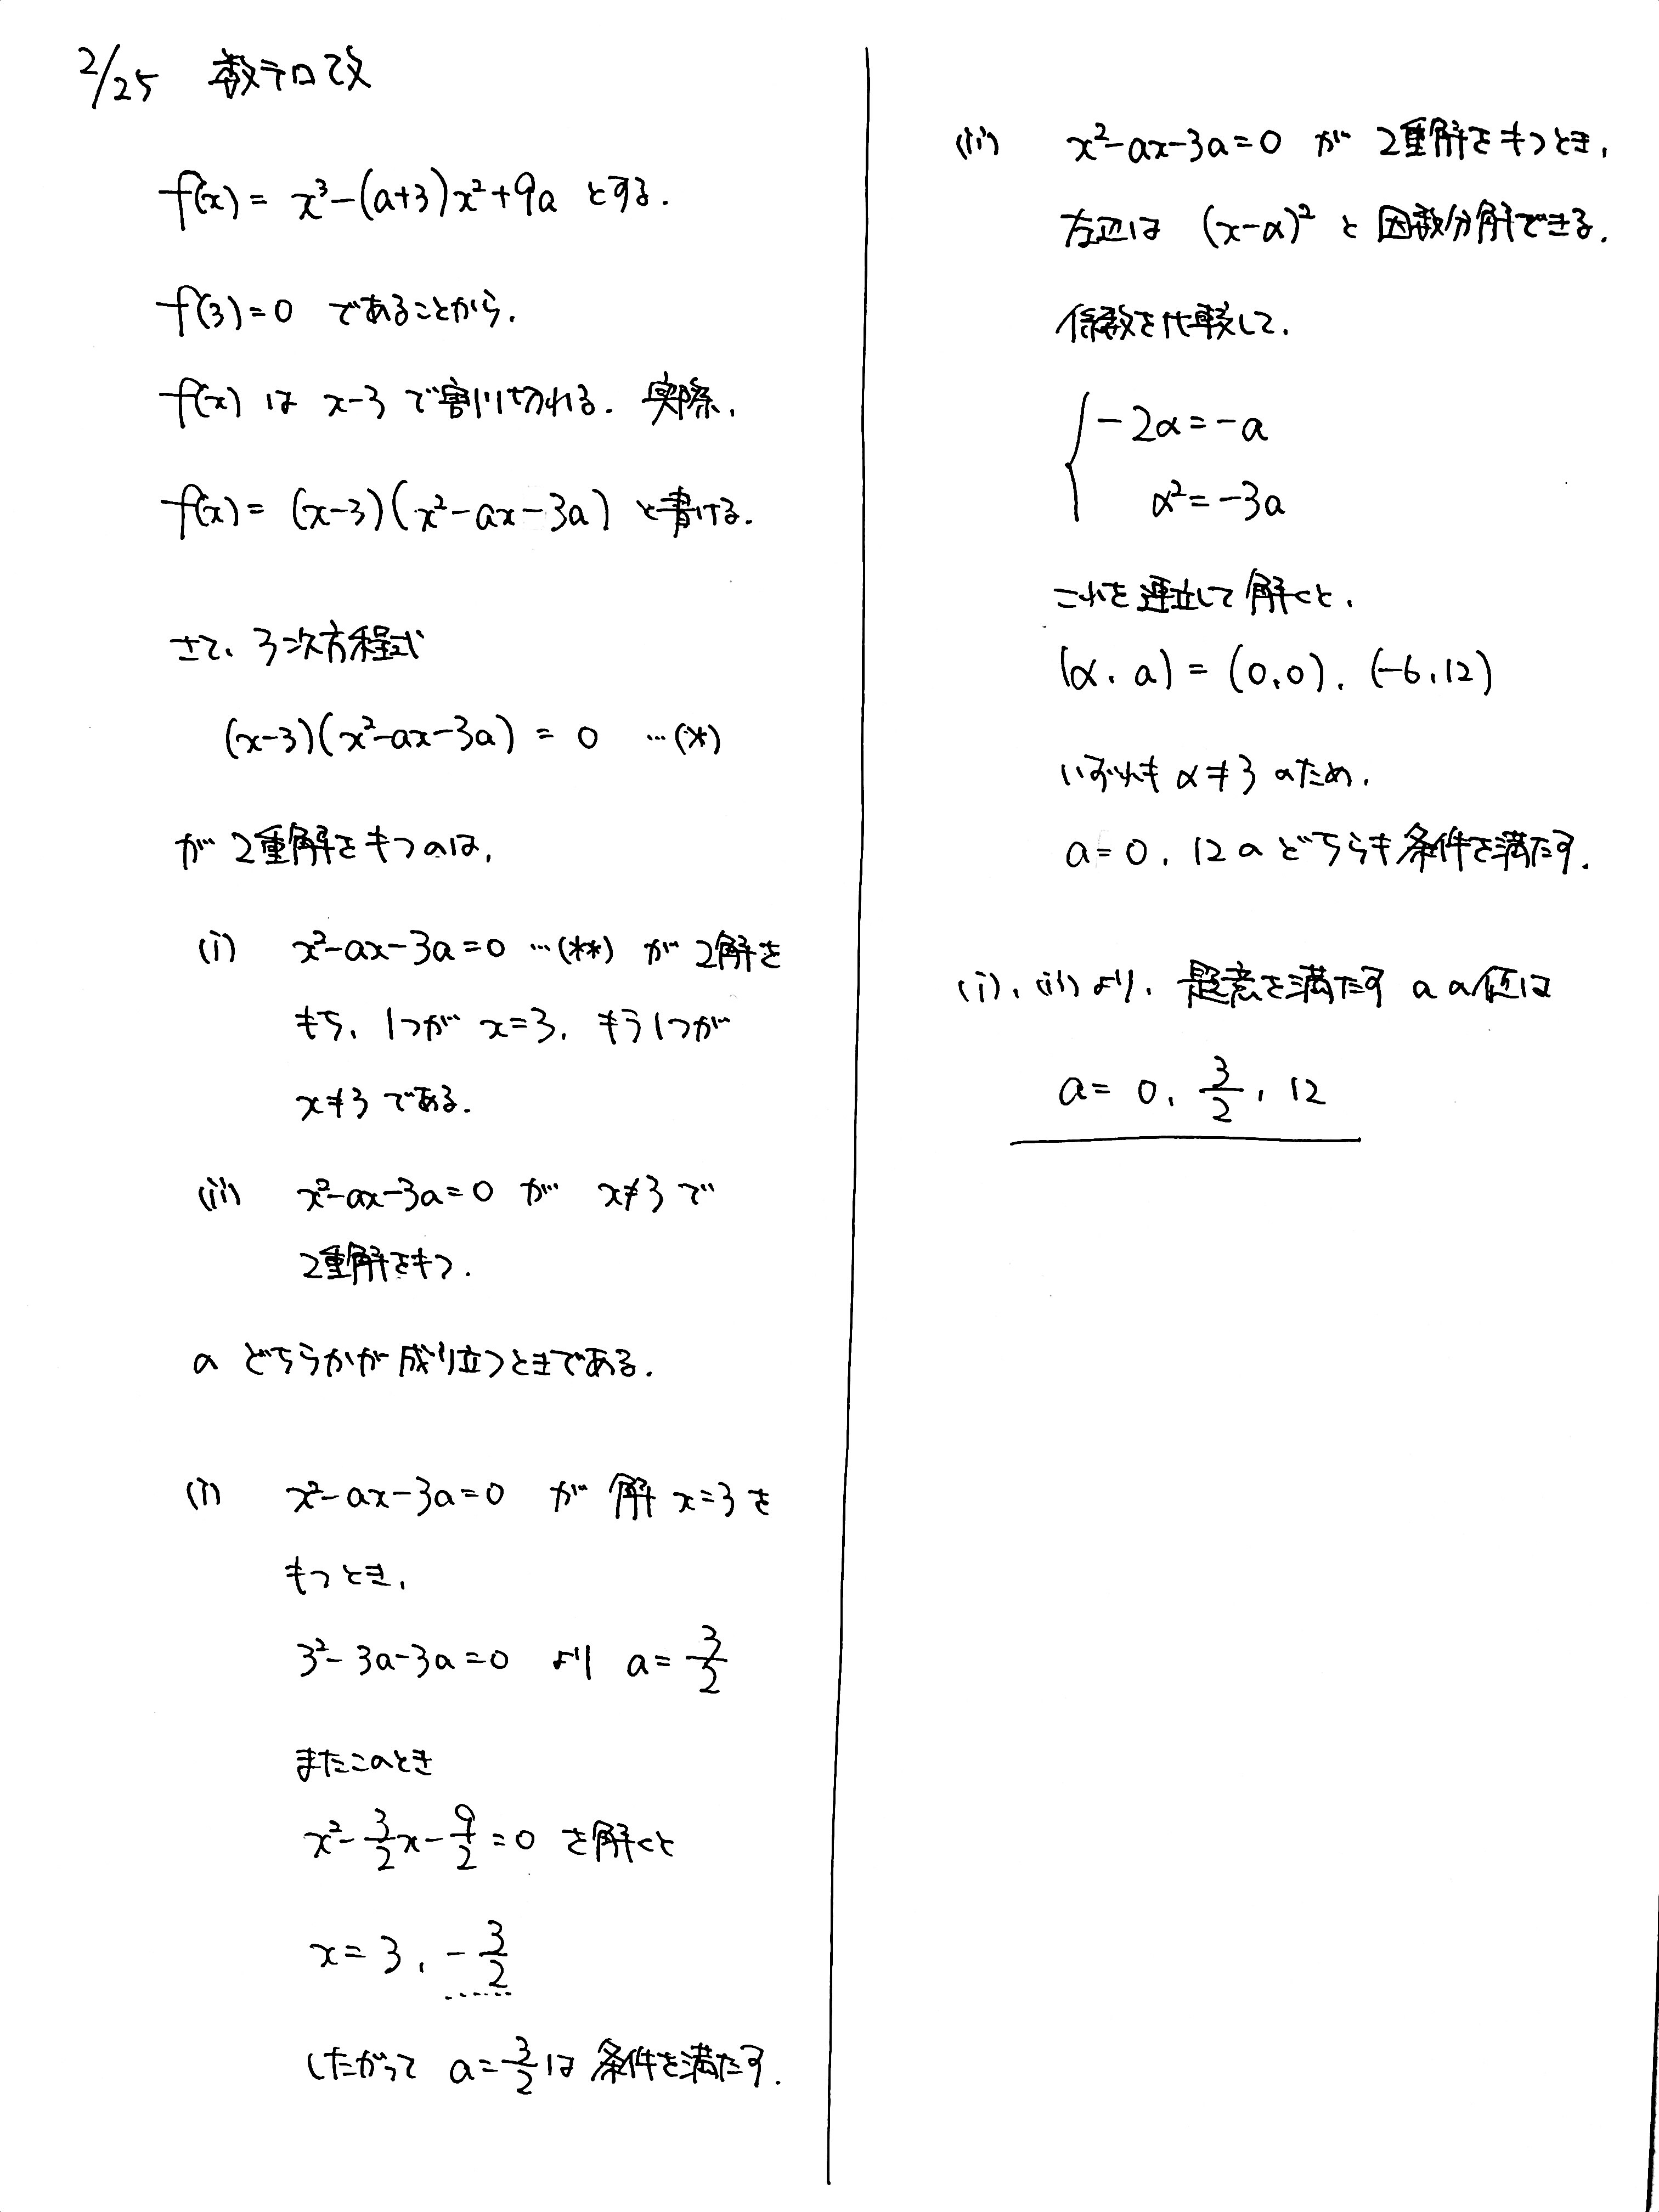 2/25 数テロ改
f(x) = x³-(a+3)x²+9a とする.
f(3)=0 であることから,
f(x) は x-3 で割り切れる. 実際,
f(x) = (x-3)(x²-ax-3a) と書ける.
さて, 3次方程式
(x-3)(x²-ax-3a) = 0 …(*)
が 2重解をもつのは,
(i) x²-ax-3a=0 …(**) が 2解を
もち, 1つが x=3, もう1つが
x≠3 である.
(ii) x²-ax-3a=0 が x≠3 で
2重解をもつ.
の どちらかが成り立つときである.
(i) x²-ax-3a=0 が 解 x=3 を
もつとき,
3²-3a-3a=0 より a=3/2
またこのとき
x²-3/2x-9/2=0 を解くと
x=3, -3/2
したがって a=3/2は 条件を満たす.
(ii) x²-ax-3a=0 が 2重解をもつとき,
左辺は (x-α)² と 因数分解できる.
係数を比較して,
{ -2α=-a
α²=-3a
これを連立して解くと,
(α, a) = (0,0), (-6,12)
いずれも α≠3 のため,
a=0, 12 の どちらも条件を満たす.
(i), (ii)より, 題意を満たす a の値は
a= 0, 3/2, 12